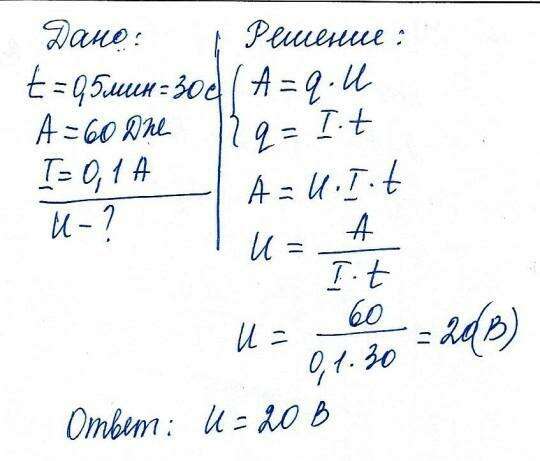 Дано:
t = 0,5 мин = 30 с
A = 60 Дж
I = 0,1 А
U - ?
Решение:
A = q · U
q = I · t
A = U · I · t
U = A / I · t
U = 60 / 0,1 · 30 = 20 (В)
Ответ: U = 20 В